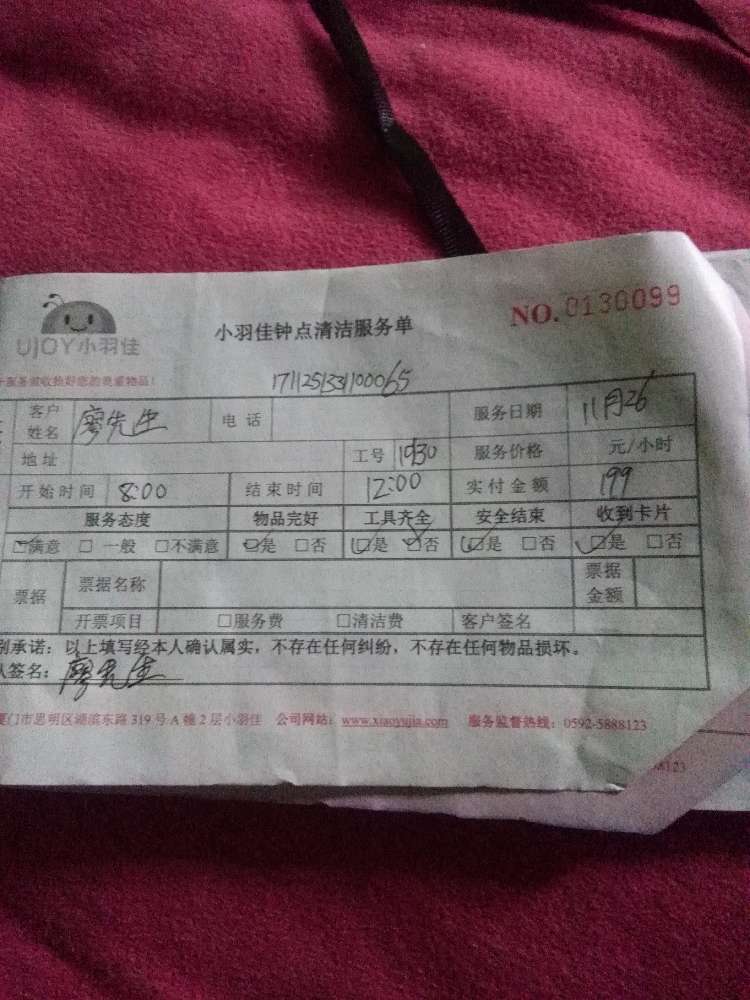 UJOY小羽佳
小羽佳钟点清洁服务单
NO.0130099
服务前收拾好您的贵重物品!
客户姓名 廖先生 电话 服务日期 11月26
地址 工号 1930 服务价格 元/小时
开始时间 8:00 结束时间 12:00 实付金额 199
服务态度 物品完好 工具齐全 安全结束 收到卡片
☑满意 □一般 □不满意 ☑是 □否 ☑是 ☑否 ☑是 □否 ☑是 □否
票据 票据名称 票据金额
开票项目 □服务费 □清洁费 客户签名
别承诺:以上填写经本人确认属实,不存在任何纠纷,不存在任何物品损坏。
人签名:廖先生
厦门市思明区湖滨东路319号A幢2层小羽佳 公司网站:www.xiaoyujia.com 服务监督热线:0592-5888123